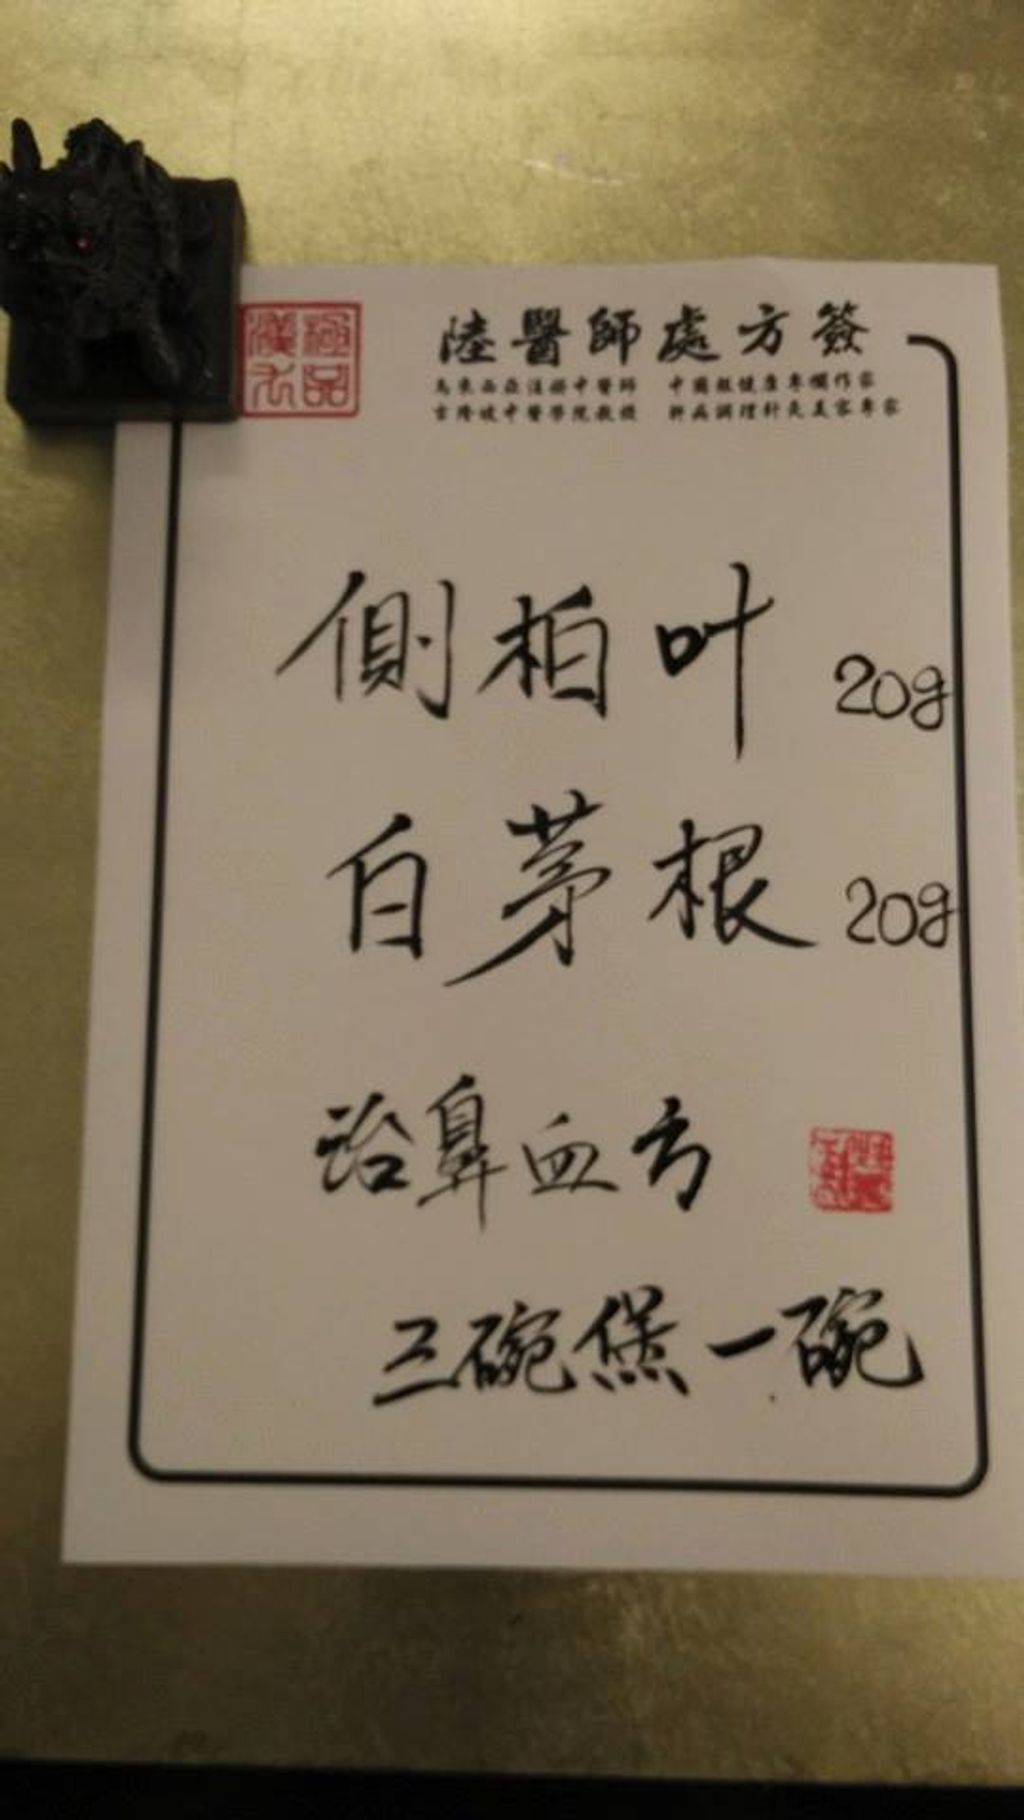 陸醫師處方簽
馬來西亞註冊中醫師 中國報健康專欄作家
吉隆坡中醫學院教授 肝病調理針灸美容專家
側柏叶 20g
白茅根 20g
治鼻血方
三碗煲一碗